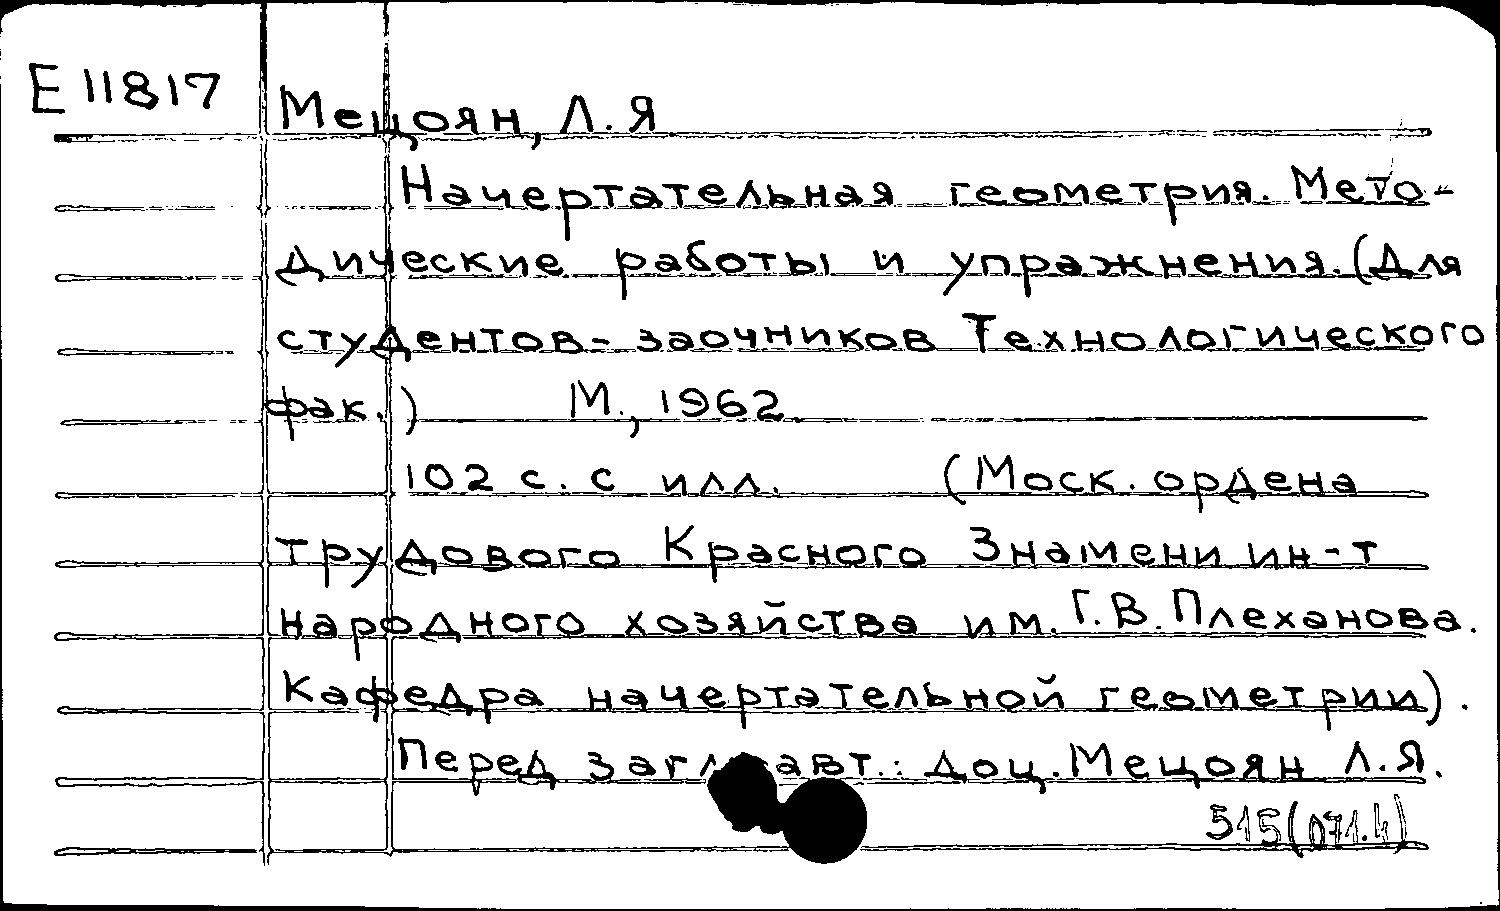 Е 11817
Мецоян, Л.Я
Начертательная геометрия. Мето-
дические работы и упражнения. (Для
студентов-заочников Технологического
фак.) М., 1962
102 с. с илл. (Моск. ордена
трудового Красного Знамени ин-т
народного хозяйства им. Г.В. Плеханова.
Кафедра начертательной геометрии).
Перед загл. авт.: доц. Мецоян Л.Я.
515(071.4)